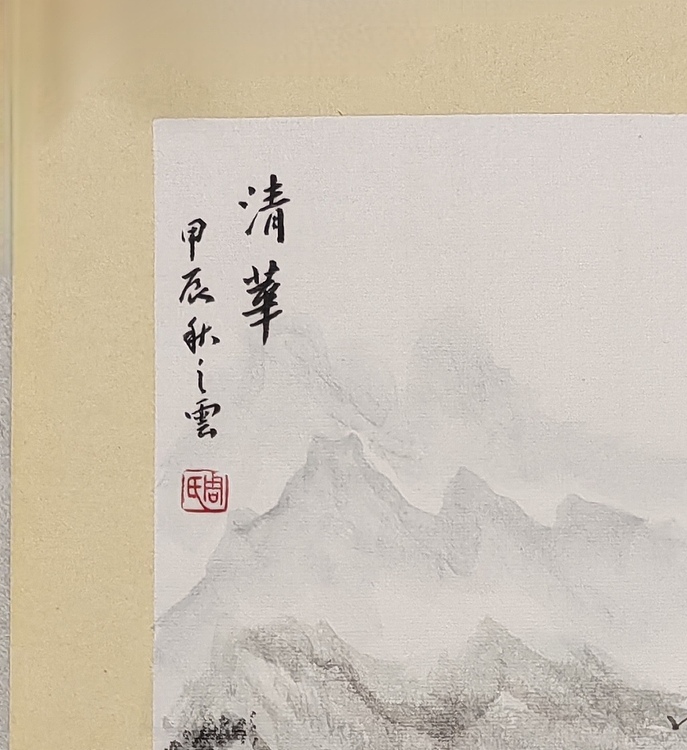 清華
甲辰秋之雲
周氏